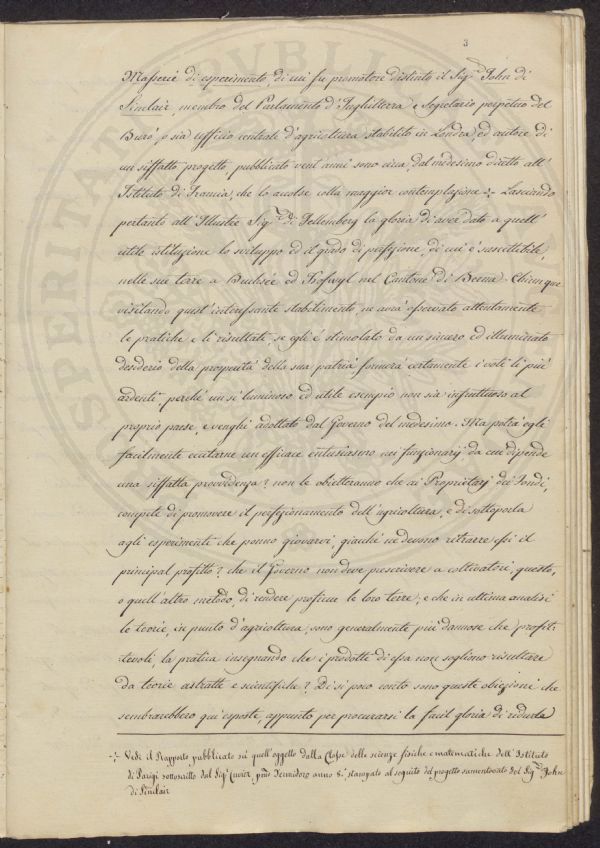 3
Masserie di esperimento, di cui fu promotore distinto il Sig.r John di
Sinclair, membro del Parlamento d'Inghilterra e Segretario perpetuo del
Burò, o sia ufficio centrale d'agricoltura stabilito in Londra, ed autore di
un siffatto progetto, pubblicato vent'anni sono circa, dal medesimo diretto all'
Istituto di Francia, che lo accolse colla maggior contemplazione ÷ Lasciando
pertanto all'Illustre Sig.r di Fellemberg la gloria di aver dato a quell'
utile istituzione lo sviluppo ed il grado di perfezione, di cui è suscettibile,
nelle sue terre a Buchsée ed Hofwyl nel Cantone di Berna - Chiunque
visitando quest'interessante stabilimento, ne avrà osservato attentamente
le pratiche e li risultati, se egli è stimolato da un sincero ed illuminato
desiderio della prosperità della sua patria formerà certamente i voti li più
ardenti perchè un sì luminoso ed utile esempio non sia infruttuoso al
proprio paese, e venghi adottato dal Governo del medesimo. Ma potrà egli
facilmente eccitarne un efficace entusiasmo nei funzionarj da cui dipende
una siffatta provvidenza? non le obietteranno che ai Proprietarj dei fondi,
compete di promovere il perfezionamento dell'agricoltura, e di sottoporla
agli esperimenti che ponno giovarvi, giacchè ne devono ritrarre essi il
principal profitto? che il Governo non deve prescrivere a coltivatori questo,
o quell'altro metodo, di rendere proficue le loro terre, e che in ultima analisi
le teorie, in punto d'agricoltura, sono generalmente più dannose che profit-
tevoli, la pratica insegnando che i prodotti di essa non sogliono risultare
da teorie astratte e scientifiche? Di sì poco conto sono queste obiezioni che
sembrarebbero qui esposte, appunto per procurarsi la facil gloria di ridurla
÷ Vedi il Rapporto pubblicato su quell'oggetto dalla Classe delle scienze fisiche e matematiche dell'Istituto
di Parigi sottoscritto dal Sig.r Cuvier, pmo Termidoro anno 8.° stampato al seguito del progetto summentovato del Sig.r John
di Sinclair